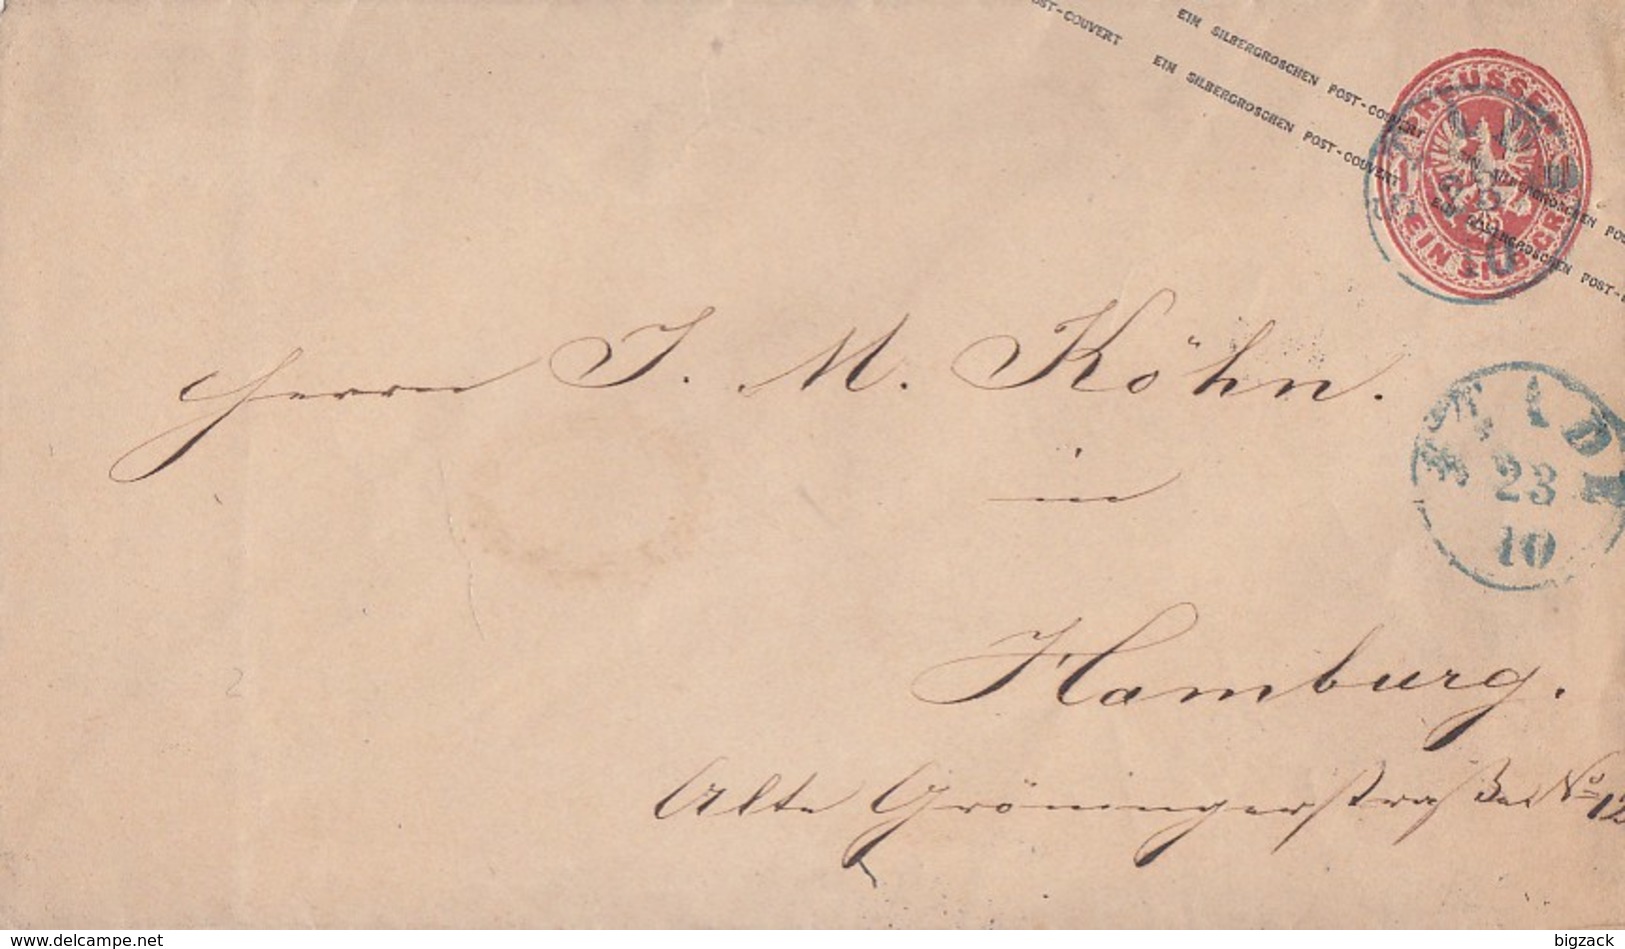 POST-COUVERT
EIN SILBERGROSCHEN POST-COUVERT
EIN SILBERGROSCHEN POST-COUVERT
EIN SILBERGROSCHEN POST-
EIN SILBERGROSCHEN POST-
PREUSSEN
EIN SILBGR.
23
10
Herrn J. M. Köhn.
in
Hamburg.
Alte Gröningerstraße No 12
23
10
delcampe.net
bigzack